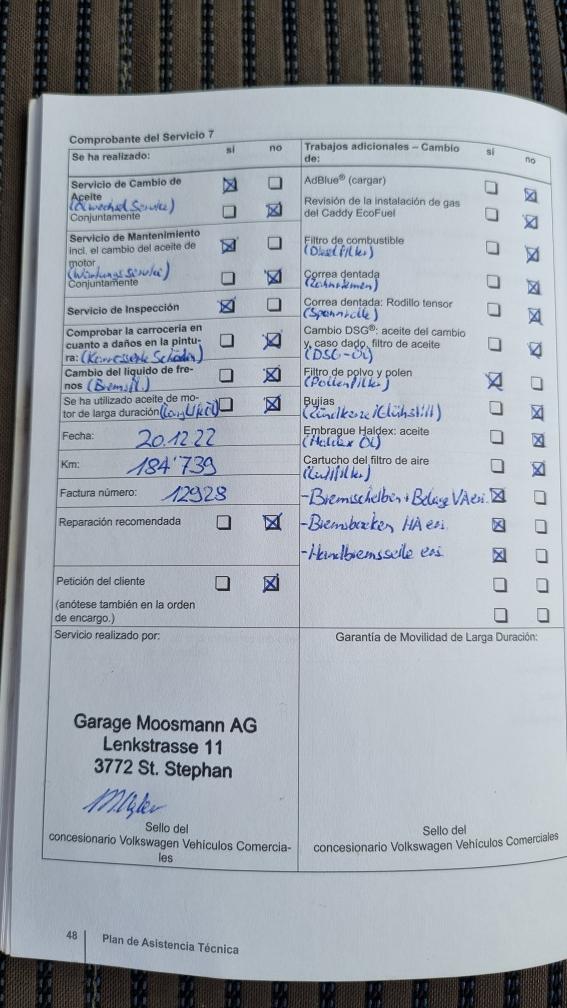 Comprobante del Servicio 7
Se ha realizado: si no
Servicio de Cambio de
Aceite
(Ölwechsel Service)
Conjuntamente
Servicio de Mantenimiento
incl. el cambio del aceite de
motor
(Wartungs Service)
Conjuntamente
Servicio de Inspección
Comprobar la carrocería en
cuanto a daños en la pintu-
ra: (Karosserie Schäden)
Cambio del líquido de fre-
nos (Bremsfl.)
Se ha utilizado aceite de mo-
tor de larga duración
Fecha: 20.12.22
Km: 184'739
Factura número: 12928
Reparación recomendada
Petición del cliente
(anótese también en la orden
de encargo.)
Servicio realizado por:
Garage Moosmann AG
Lenkstrasse 11
3772 St. Stephan
Sello del
concesionario Volkswagen Vehículos Comercia-
les
Trabajos adicionales – Cambio
de: si no
AdBlue® (cargar)
Revisión de la instalación de gas
del Caddy EcoFuel
Filtro de combustible
(Dieselfilter)
Correa dentada
(Zahnriemen)
Correa dentada: Rodillo tensor
(Spannrolle)
Cambio DSG®: aceite del cambio
y, caso dado, filtro de aceite
(DSG-Öl)
Filtro de polvo y polen
(Pollenfilter)
Bujías
(Zündkerze/Glühstift)
Embrague Haldex: aceite
(Haldex Öl)
Cartucho del filtro de aire
(Luftfilter)
-Bremsscheiben + Beläge VA ers.
-Bremsbacken HA ers.
-Handbremsseile ers.
Garantía de Movilidad de Larga Duración:
Sello del
concesionario Volkswagen Vehículos Comerciales
48 Plan de Asistencia Técnica